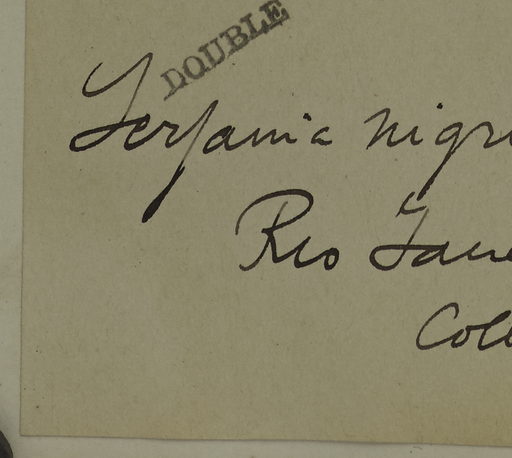 DOUBLE
Serjania nigr
Rio Jane
Coll